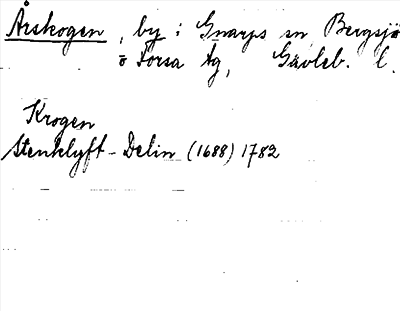 Årskogen, by i Gnarps sn Bergsjö
o Forsa tg, Gävleb. l.
Krogen
Stenklyft - Delin (1688) 1782